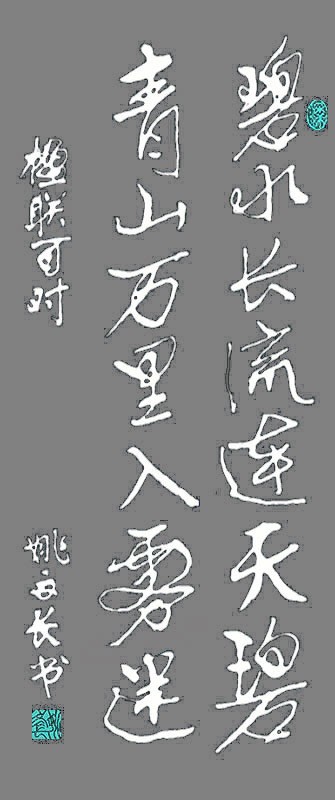 碧水长流连天碧
青山万里入雾迷
楹联可对
姚云长书